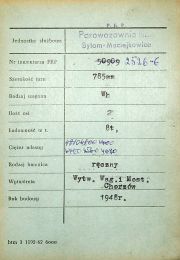 P.K.P.
Jednostka służbowa Parowozownia
Bytom-Maciejkowice
Nr inwentarza PKP 50909 2526-6
Szerokość toru 785mm
Rodzaj wagonu Wę
Ilość osi 2
Ładowność w t. 8t,
Ciężar własny
Rodzaj hamulca ręczny
Wytwórnia Wytw. Wag.i Most.
Chorzów
Rok budowy 1948r.